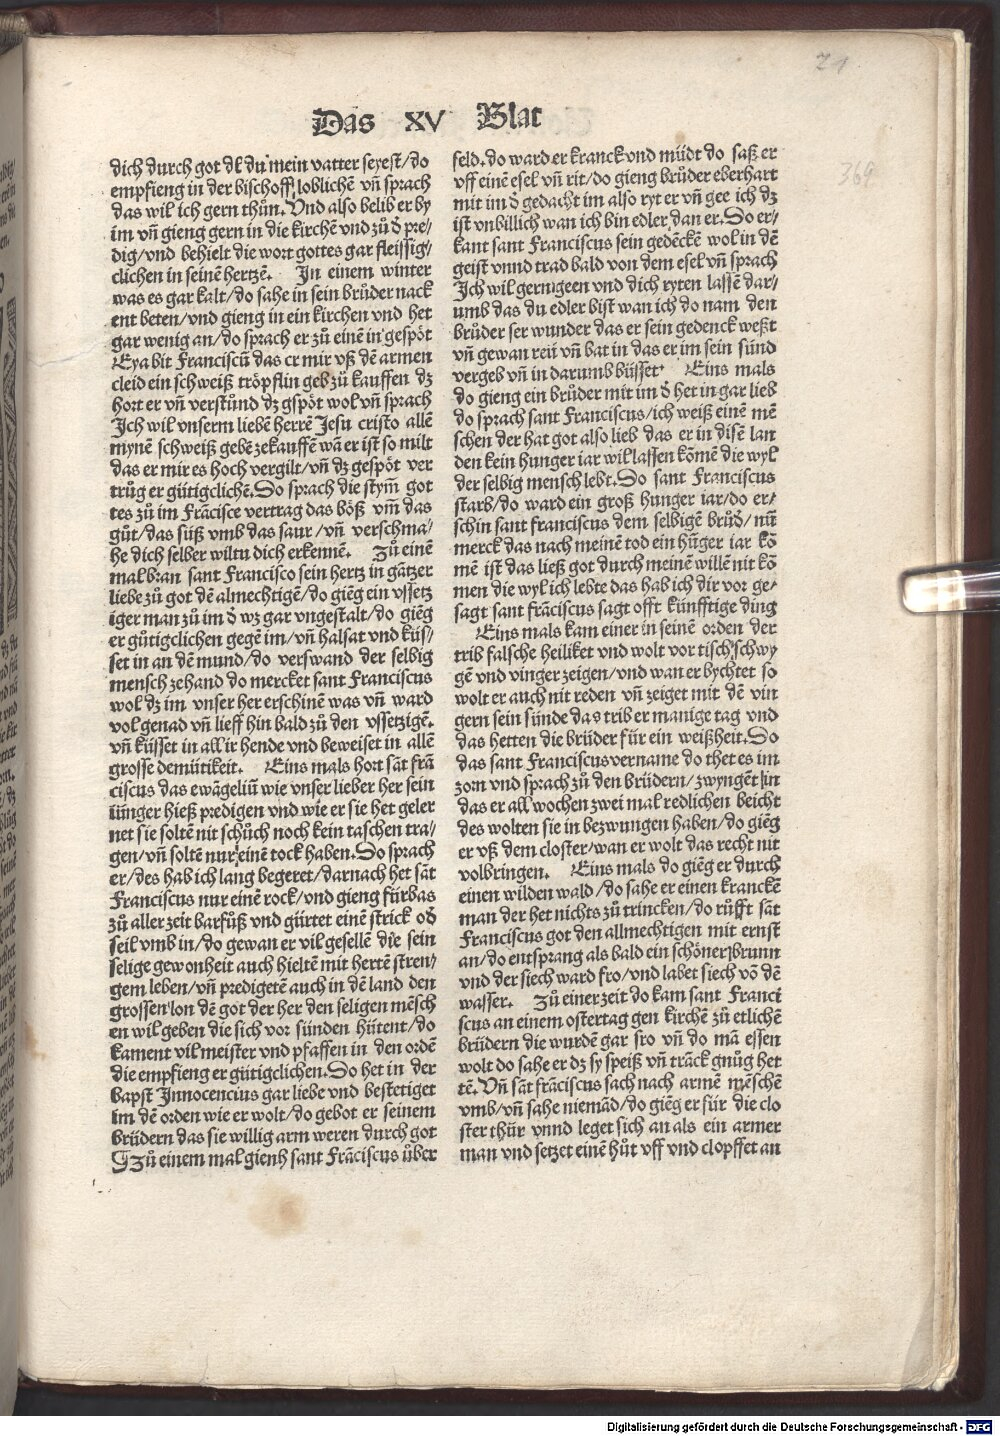 21
369
Das XV Blat
dich durch got dz du mein vatter seyest/do
empfieng in der bischoff loblichẽ vñ sprach
das wil ich gern thůn. Vnd also belib er by
im vñ gieng gern in die kirchẽ vnd zů d̄ pre/
dig/vnd behielt die wort gottes gar fleissig/
clichen in seinẽ hertzẽ. In einem winter
was es gar kalt/do sahe in sein brůder nack
ent beten/vnd gieng in ein kirchen vnd het
gar wenig an/do sprach er zů einẽ in gespöt
Eya bit Franciscũ das er mir vß dẽ armen
cleid ein schweiß tröpflin geb zů kauffen dz
hort er vñ verstůnd dz gspöt wol vñ sprach
Ich wil vnserm liebẽ herrẽ Jesu cristo allẽ
mynẽ schweiß gebẽ zekauffẽ wã er ist so milt
das er mir es hoch vergilt/vñ dz gespöt ver
trůg er gütigclichẽ. Do sprach die stym̄ got
tes zů im Frãcisce vertrag das böß vm̄ das
gůt/das süß vmb das saur/vñ verschma/
he dich selber wiltu dich erkennẽ. Zů einẽ
mal bran sant Francisco sein hertz in gãtzer
liebe zů got dẽ almechtigẽ/do giẽg ein vssetz
iger man zů im d̄ wz gar vngestalt/do giẽg
er gütigclichen gegẽ im/vñ halsat vnd küs/
set in an dẽ mund/do verswand der selbig
mensch zehand do mercket sant Franciscus
wol dz im vnser her erschinẽ was vñ ward
vol genad vñ lieff hin bald zů den vssetzigẽ.
vñ küsset in all ir hende vnd beweiset in allẽ
grosse demütikeit. Eins mals hort sãt frã
ciscus das ewãgeliũ wie vnser lieber her sein
iünger hieß predigen vnd wie er sie het geler
net sie soltẽ nit schůch noch kein taschen tra/
gen/vñ soltẽ nur einẽ rock haben. Do sprach
er/des hab ich lang begeret/darnach het sãt
Franciscus nur einẽ rock/vnd gieng fürbas
zů aller zeit barfůß vnd gürtet einẽ strick od̄
seil vmb in/do gewan er vil gesellẽ die sein
selige gewonheit auch hieltẽ mit hertẽ stren/
gem leben/vñ predigetẽ auch in dẽ land den
grossen lon dẽ got der her den seligen mẽsch
en wil geben die sich vor sünden hütent/do
kament vil meister vnd pfaffen in den ordẽ
die empfieng er gütigclichen. Do het in der
bapst Innocencius gar liebe vnd bestetiget
im dẽ orden wie er wolt/do gebot er seinem
brüdern das sie willig arm weren durch got
¶ Zů einem mal gienh sant Frãciscus über
feld. do ward er kranck vnd müdt do saß er
vff einẽ esel vñ rit/do gieng brůder eberhart
mit im d̄ gedacht im also ryt er vñ gee ich dz
ist vnbillich wan ich bin edler dan er. Do er/
kant sant Franciscus sein gedẽckẽ wol in dẽ
geist vnnd trad bald von dem esel vñ sprach
Ich wil gern geen vnd dich ryten lassẽ dar/
umb das du edler bist wan ich do nam den
brůder ser wunder das er sein gedenck weßt
vñ gewan reü vñ bat in das er im sein sünd
vergeb vñ in darumb büsset. Eins mals
do gieng ein brůder mit im d̄ het in gar lieb
do sprach sant Franciscus/ich weiß einẽ mẽ
schen der hat got also lieb das er in disẽ lan
den kein hunger iar wil lassen kõmẽ die wyl
der selbig mensch lebt. Do sant Franciscus
starb/do ward ein groß hunger iar/do er/
schin sant franciscus dem selbigẽ brůd̄/ nũ
merck das nach meinẽ tod ein hũger iar kõ
mẽ ist das ließ got durch meinẽ willẽ nit kõ
men die wyl ich lebte das hab ich dir vor ge/
sagt sant frãciscus sagt offt künfftige ding
Eins mals kam einer in seinẽ orden der
trib falsche heiliket vnd wolt vor tisch schwy
gẽ vnd vinger zeigen/vnd wan er bychtet so
wolt er auch nit reden vñ zeiget mit dẽ vin
gern sein sünde das trib er manige tag vnd
das hetten die brüder für ein weißheit. Do
das sant Franciscus vername do thet es im
zorn vnd sprach zů den brüdern/zwyngẽt in
das er all wochen zwei mal redlichen beicht
des wolten sie in bezwungen haben/do giẽg
er vß dem closter/wan er wolt das recht nit
volbringen. Eins mals do giẽg er durch
einen wilden wald/do sahe er einen kranckẽ
man der het nichts zů trincken/do rüfft sãt
Franciscus got den allmechtigen mit ernst
an/do entsprang als bald ein schöner brunn
vnd der siech ward fro/vnd labet siech võ dẽ
wasser. Zů einer zeit do kam sant Franci
scus an einem ostertag gen kirchẽ zů etlichẽ
brüdern die wurdẽ gar fro vñ do mã essen
wolt do sahe er dz sy speiß vñ trãck gnůg het
tẽ. Vñ sãt frãciscus sach nach armẽ mẽschẽ
vmb/vñ sahe niemãd/do giẽg er für die clo
ster thür vnnd leget sich an als ein armer
man vnd setzet einẽ hůt vff vnd clopffet an
Digitalisierung gefördert durch die Deutsche Forschungsgemeinschaft - DFG